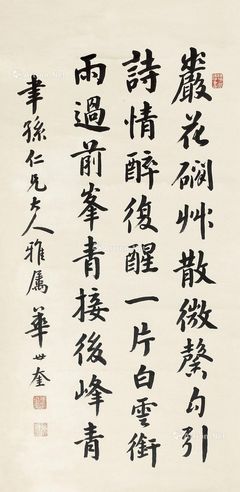 巖花磵艸散微馨勾引
詩情醉復醒一片白雲銜
雨過前峯青接後峰青
聿孫仁兄大人雅屬 華世奎